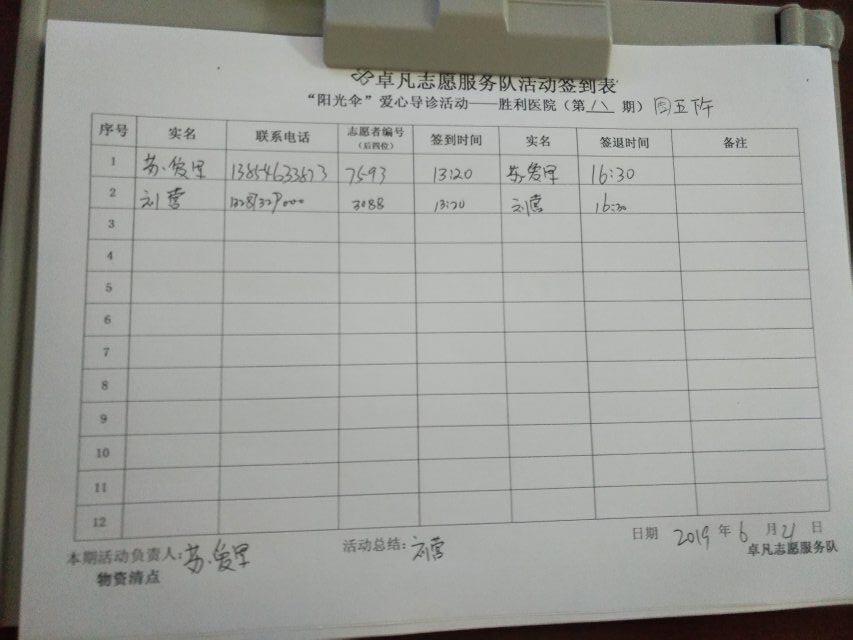 卓凡志愿服务队活动签到表
“阳光伞”爱心导诊活动——胜利医院（第 八 期）周五下午
序号 实名 联系电话 志愿者编号（后四位） 签到时间 实名 签退时间 备注
1 苏爱军 7593 13:20 苏爱军 16:30
2 刘营 3088 13:20 刘营 16:30
3
4
5
6
7
8
9
10
11
12
本期活动负责人:苏爱军 活动总结:刘营 日期 2019 年 6 月 21 日
物资清点 卓凡志愿服务队